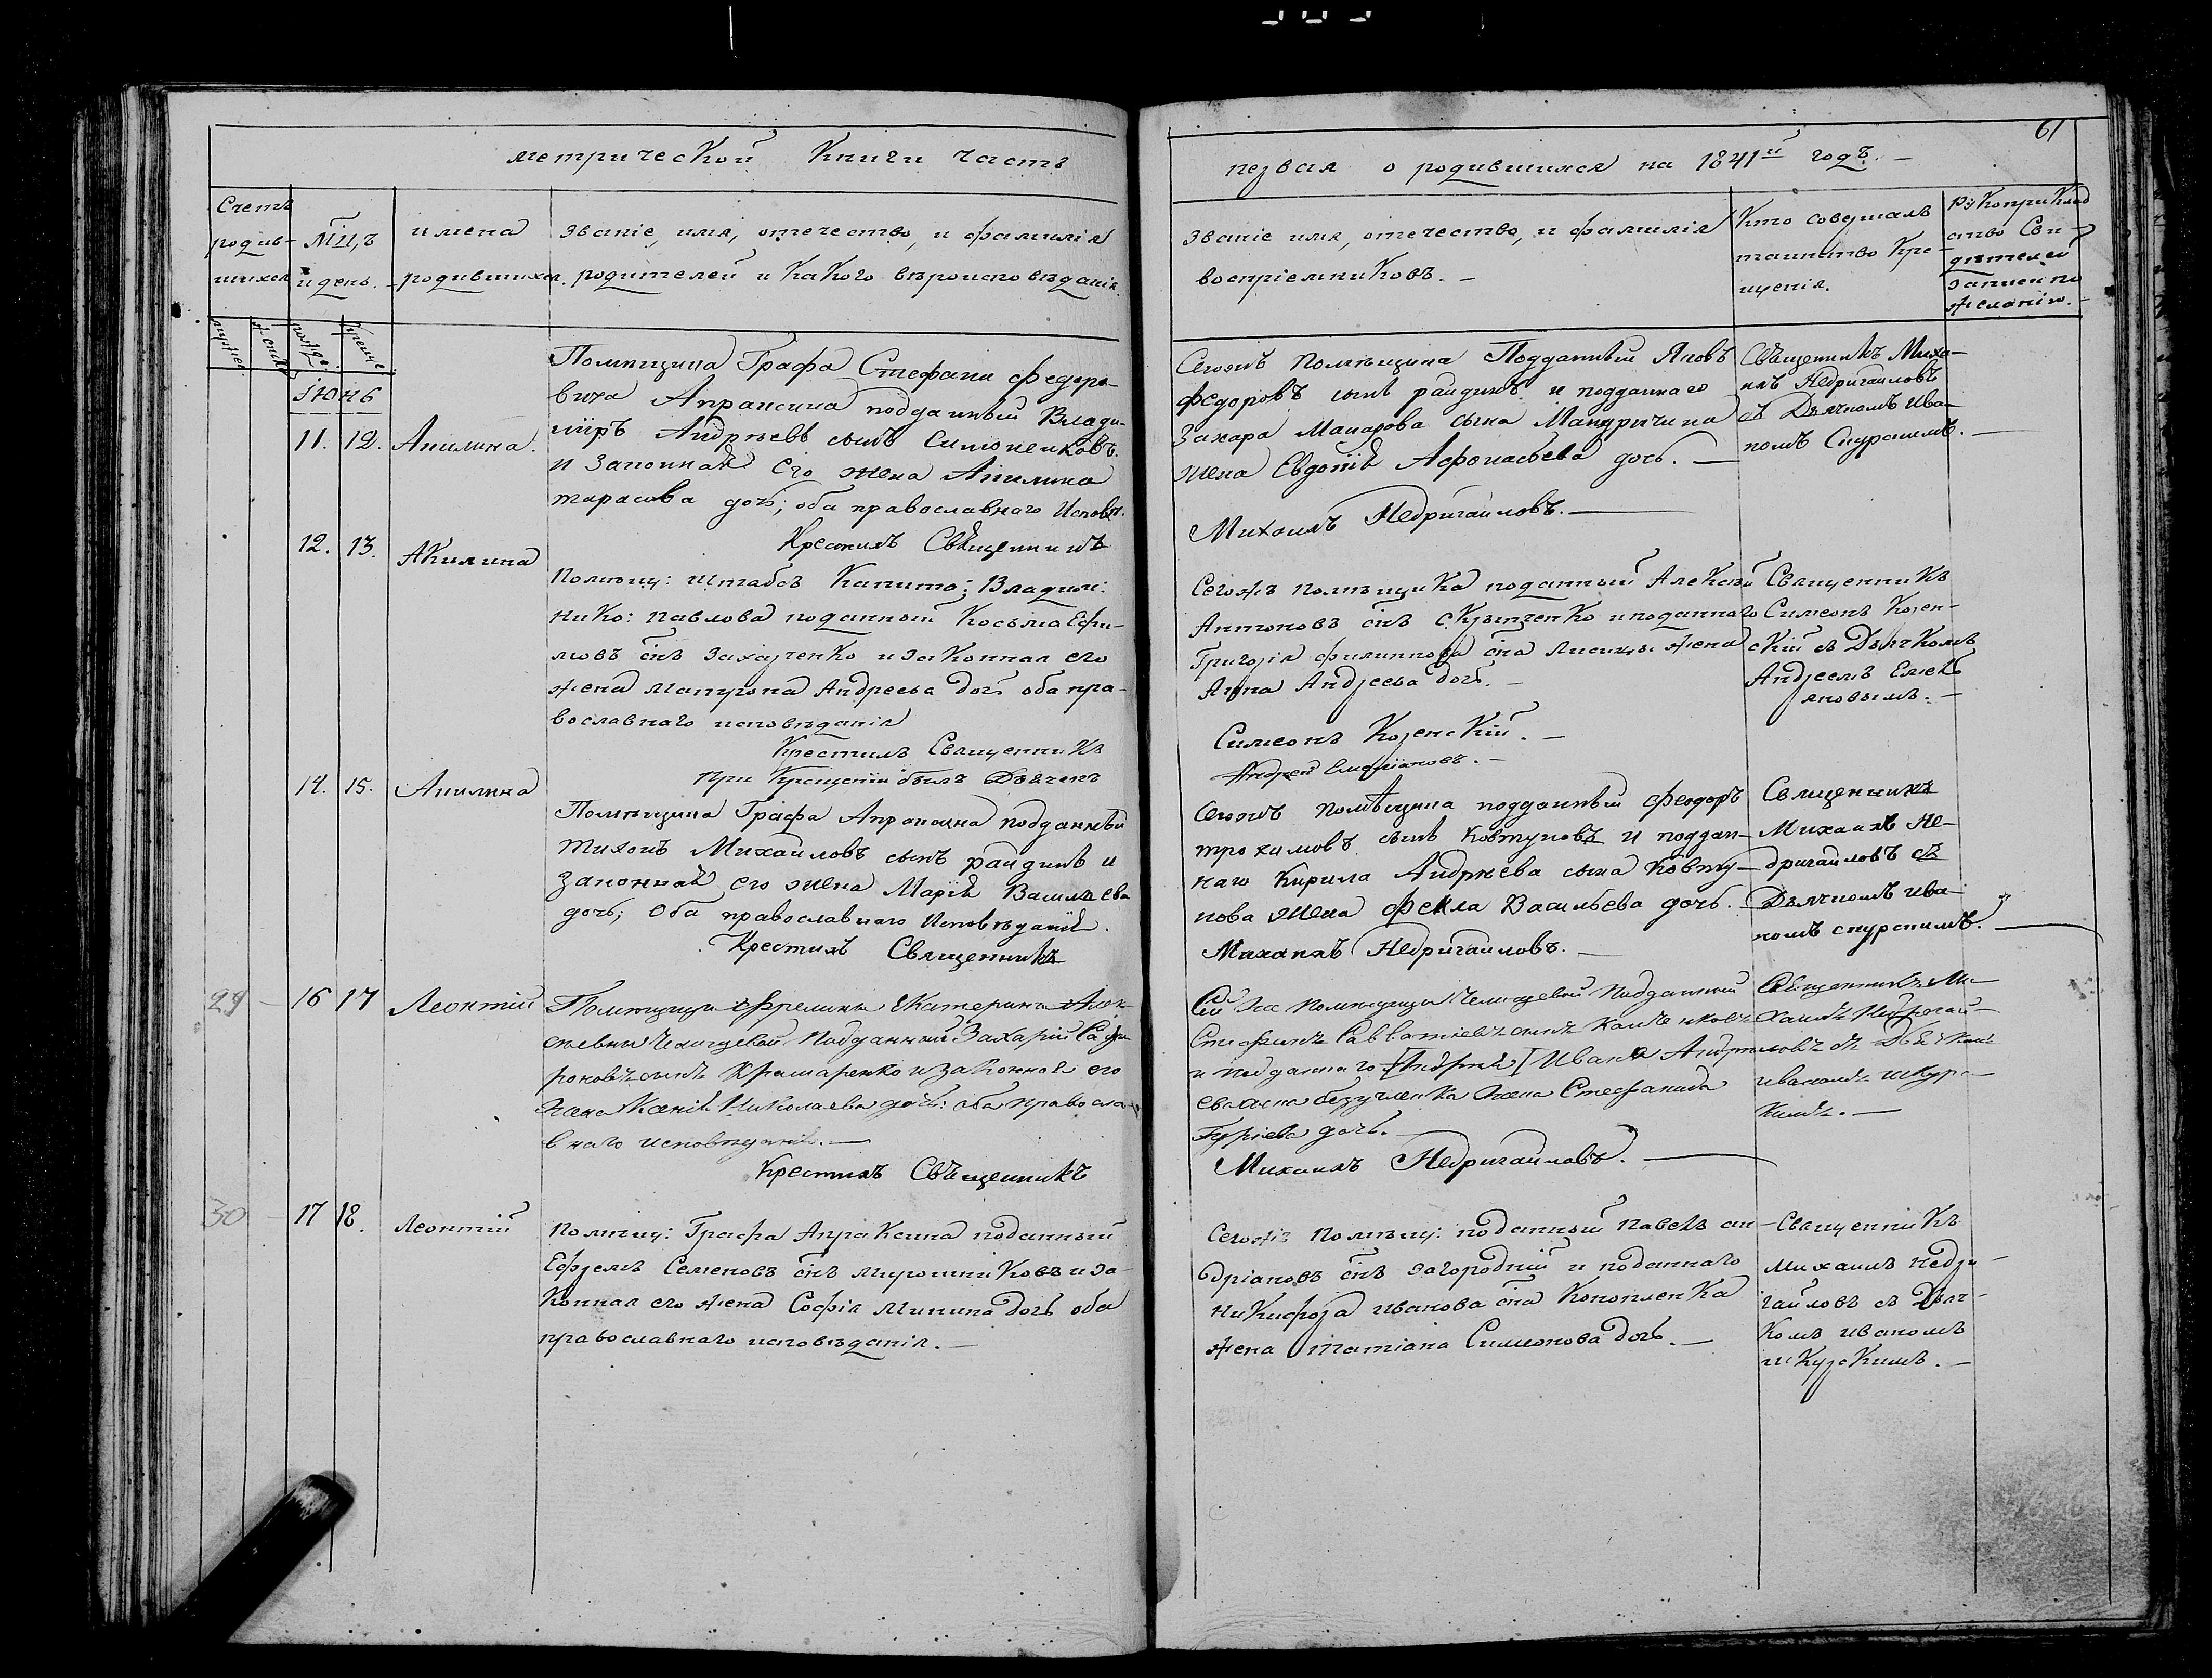 61
метрической Книги часть
первая о родившихся на 1841й годъ. –
Счетъ родив- шихся
Мцъ и день. –
имена родившихся.
званіе, имя, отечество, и фамилія
родителей и какого вѣроисповѣданія.
званіе имя, отечество, и фамилія
воспріемниковъ. –
Кто совершалъ
таинство Кре-
щенія.
Рукоприклад
ство Сви-
дѣтелей
записи по
желанію. –
Іюнь
11. 12. Акилина.
Помѣщика Графа Стефана Федоро-
вича Апраксина подданный Влади-
миръ Андрѣевъ сынъ Симоненковъ.
и законная Его жена Акилина
тарасова дочь; оба православнаго Исповѣ.
Крестилъ Священникъ
Сегожъ Помѣщика Подданный Яковъ
Федоровъ сынъ райдинъ и подданнаго
Захара Макарова сына Мандрычина
жена Евдокія Афонасьева дочь. —
Михаилъ Недригайловъ. —
Священникъ Миха-
илъ Недригайловъ
съ Дьячкомъ Ива-
номъ Шкурскимъ. —
12. 13. Акилина
Помѣщ: штабсъ Капита: Владим:
Нико: Павлова поданный Косьма Ефи-
мовъ снъ Захарченко и законная его
жена Матрона Андреева дочь оба пра-
вославнаго исповѣданія
Крестилъ Священникъ
При Крещеніи былъ Дьячекъ
Сегожъ помѣщика поданный Алексѣй
Антоновъ снъ и поданнаго
Григорія филиппова сна Лисицы жена
Анна Андреева дочь. –
Симеонъ Козенскій. –
Андрей Емеліановъ. –
Священникъ
Симеонъ Козен-
скій съ Дьячкомъ
Андреемъ Емель
яновымъ. –
14. 15. Акилина
Помѣщика Графа Апраксина подданный
Тихонъ Михайловъ сынъ райдинъ и
законная его жена Марія Васильева
дочь; Оба православнаго Исповѣданія.
Крестилъ Священникъ
Сегожъ помѣщика подданный Феодоръ
трохимовъ сынъ Ковтуновъ и поддан-
наго Кирила Андрѣева сына Ковту-
нова жена Фекла Васильева дочь.
Михаилъ Недригайловъ. –
Священникъ
Михаилъ Не-
дригайловъ съ
Дьячкомъ Ива-
номъ Шкурскимъ. —
29 – 16 17 Леонтій
Помѣщицы Фрелины Екатерины Алек-
сѣевны Подданный Захарій Саф
роновъ сынъ Крамаренко и законная его
жена Ксенія Николаева дочь: оба правосла-
внаго исповѣданія. —
Крестилъ Священникъ
Сей же Помѣщицы Подданный
Савватіевъ сынъ
и подданнаго [Андрей] Ивана
ева сына жена Стефанида
Гуріева дочь. –
Михаилъ Недригайловъ. —
Священникъ Ми-
хаилъ Недригай-
ловъ съ Дьячкомъ
иваномъ шкурс-
кимъ. —
30 – 17 18. Леонтій
Помѣщ: Графа Апраксина поданный
Ефремъ Семеновъ снъ Мирошниковъ и за-
конная его жена Софія Минина дочь оба
православнаго исповѣданія. –
Сегожъ Помѣщ: поданный Павелъ ан-
дріановъ снъ Загородній и поданнаго
Никифора иванова сна Конопленка
жена татіана Симонова дочь. –
Священникъ
Михаилъ недри-
гайловъ съ Дьяч-
комъ иваномъ
шкурскимъ. –